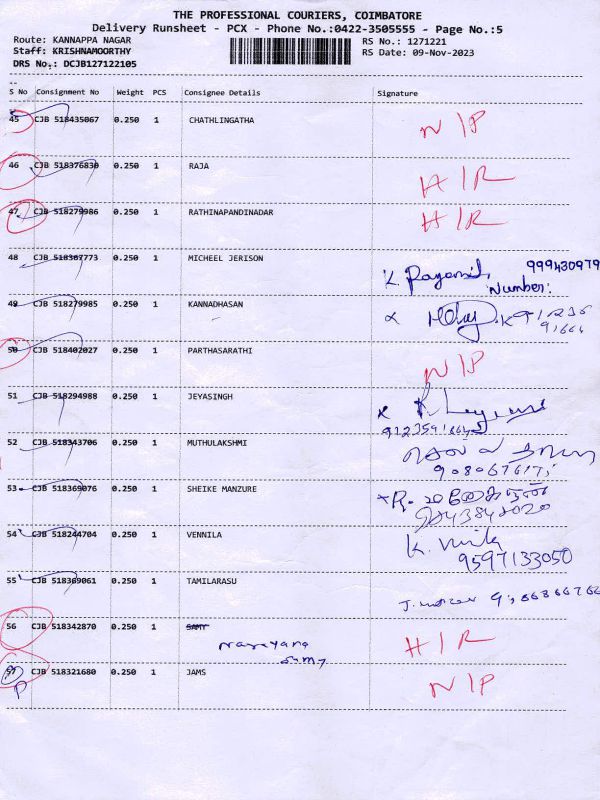 THE PROFESSIONAL COURIERS, COIMBATORE
Delivery Runsheet - PCX - Phone No.:0422-3505555 - Page No.:5
Route: KANNAPPA NAGAR RS No.: 1271221
Staff: KRISHNAMOORTHY RS Date: 09-Nov-2023
DRS No.: DCJB127122105
S No Consignment No Weight PCS Consignee Details Signature
45 CJB 518435067 0.250 1 CHATHLINGATHA N/P
46 CJB 518376830 0.250 1 RAJA H/R
47 CJB 518279986 0.250 1 RATHINAPANDINADAR H/R
48 CJB 518367773 0.250 1 MICHEEL JERISON 999430979
Number:
49 CJB 518279985 0.250 1 KANNADHASAN
50 CJB 518402027 0.250 1 PARTHASARATHI N/P
51 CJB 518294988 0.250 1 JEYASINGH
52 CJB 518343706 0.250 1 MUTHULAKSHMI
53 CJB 518369076 0.250 1 SHEIKE MANZURE
54 CJB 518244704 0.250 1 VENNILA
9597133050
55 CJB 518369061 0.250 1 TAMILARASU
56 CJB 518342870 0.250 1 SAMY H/R
Narayana
Samy
57 CJB 518321680 0.250 1 JAMS N/P
P